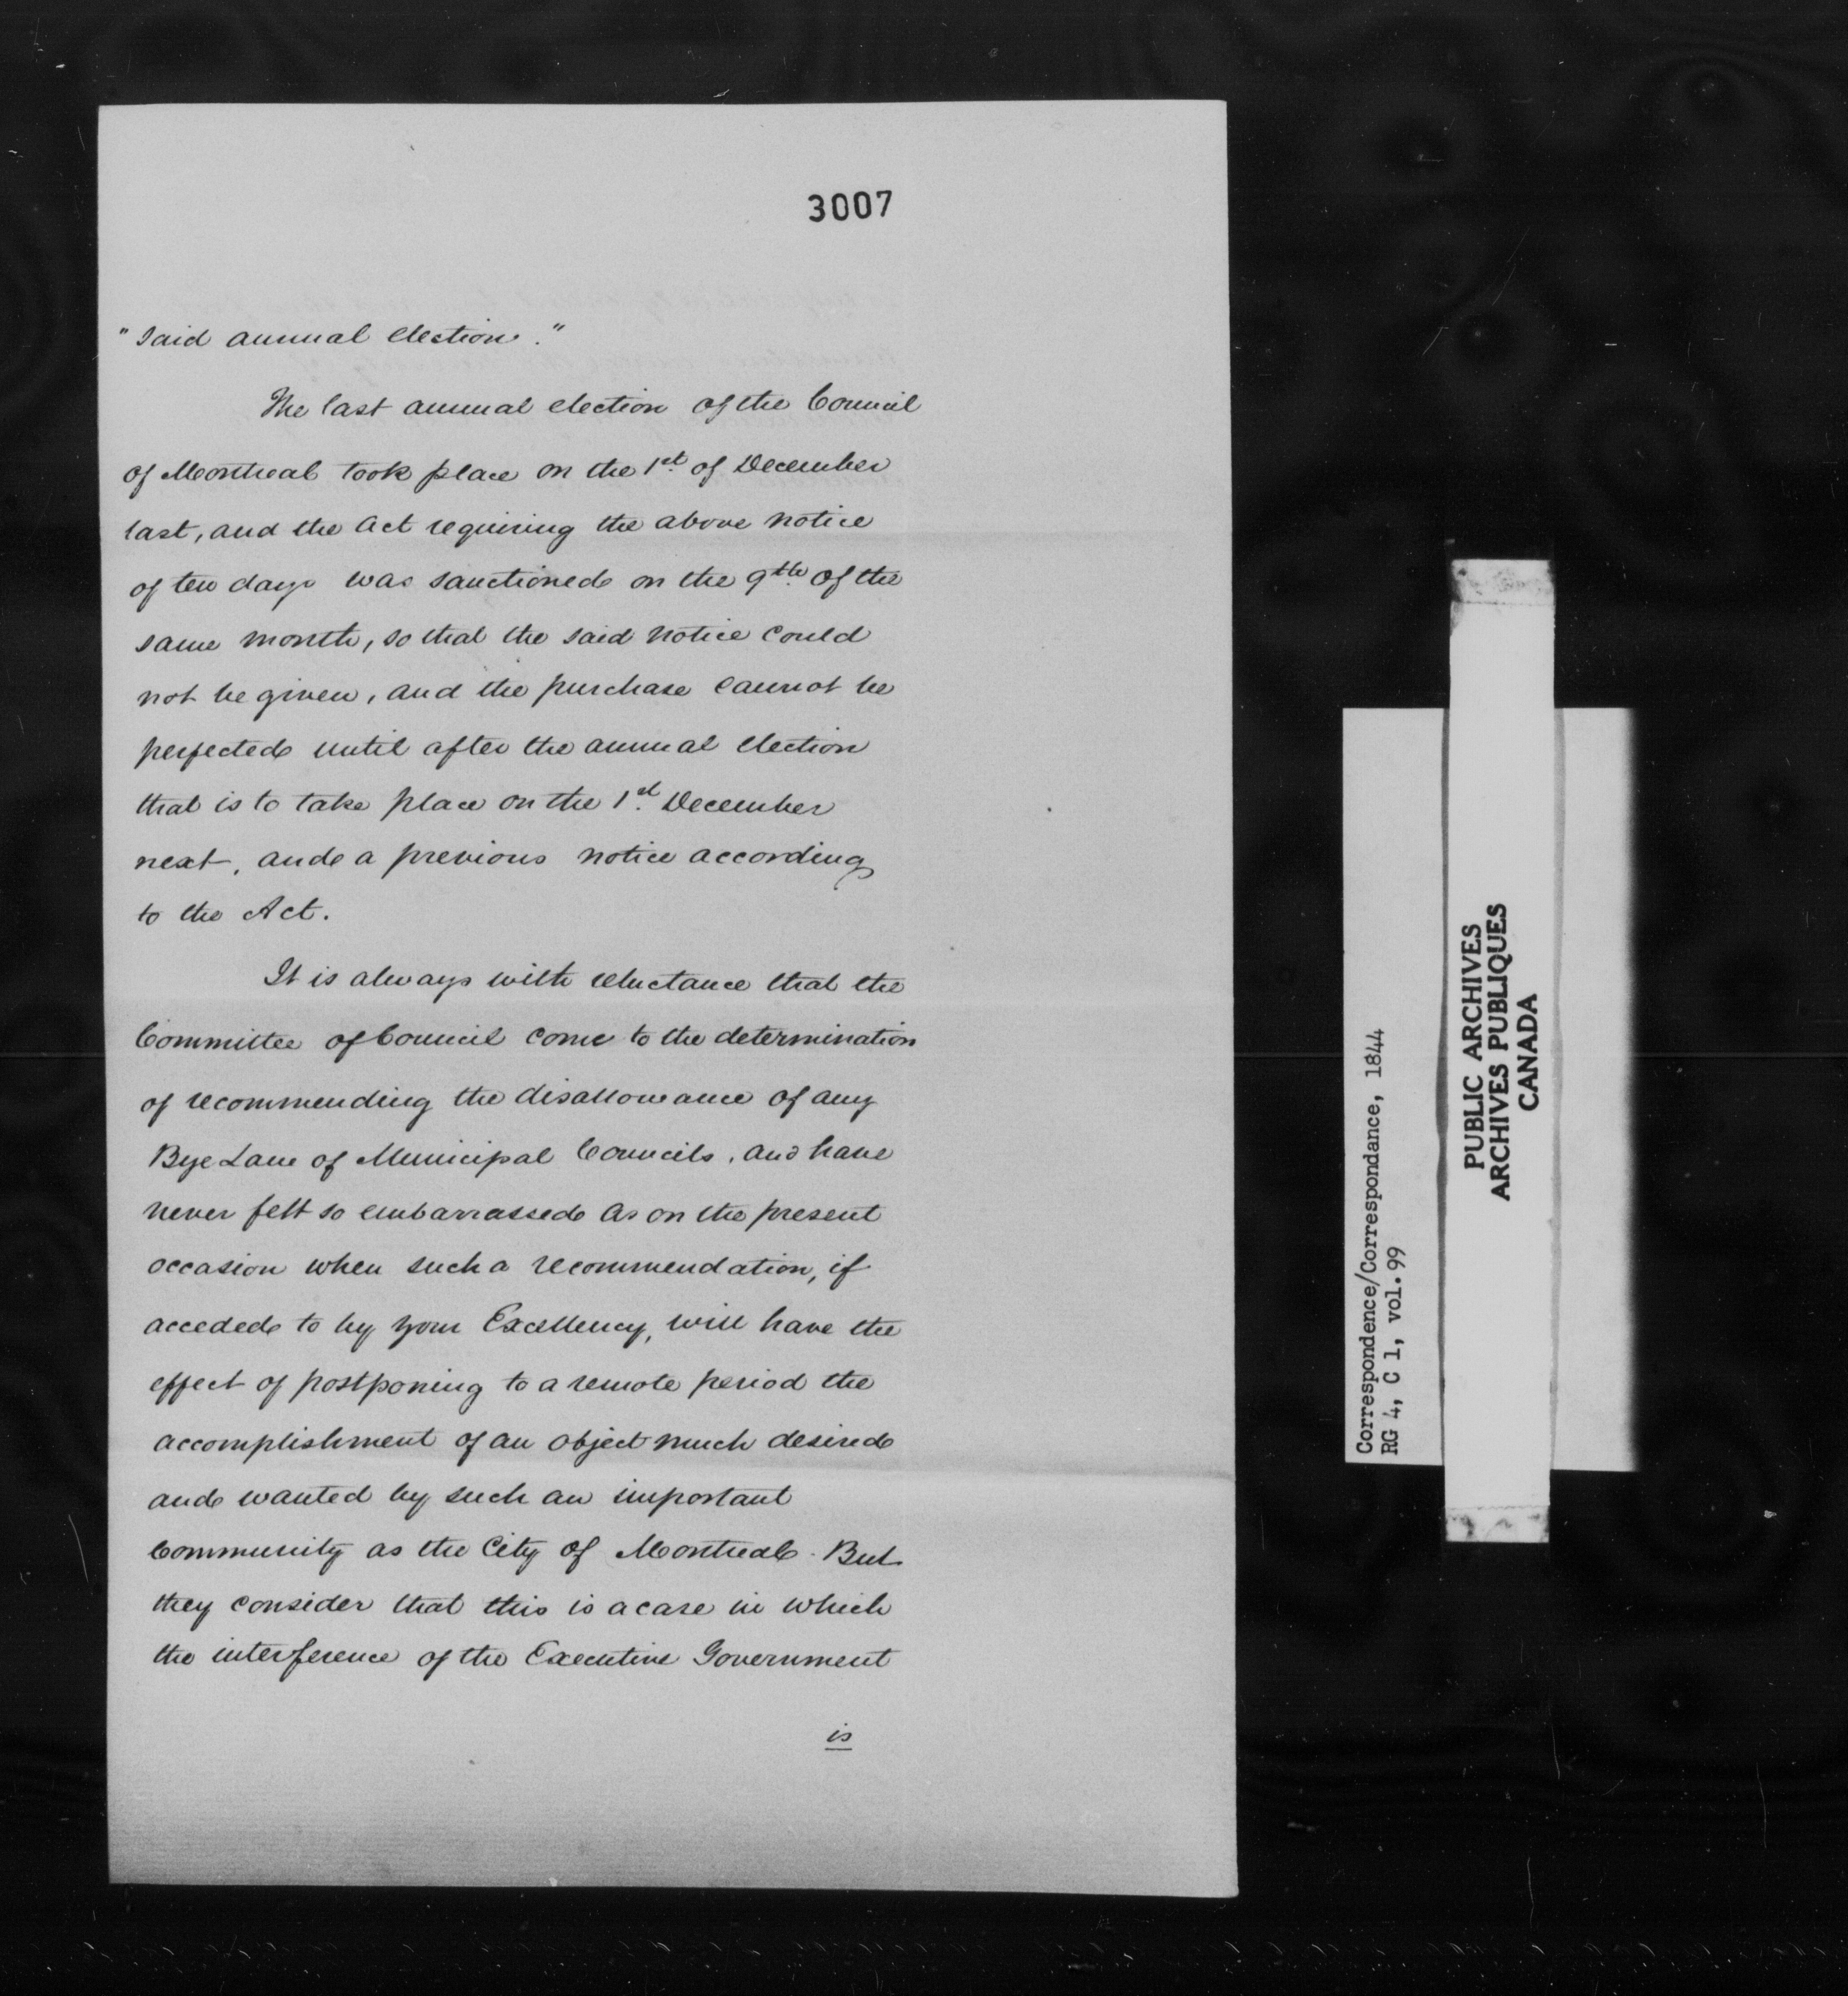 3007
"Said annual election."
The last annual election of the Council
of Montreal took place on the 1st of December
last, and the Act requiring the above notice
of ten days was sanctioned on the 9th of the
same month, so that the said notice could
not be given, and the purchase cannot be
perfected until after the annual election
that is to take place on the 1st December
next, and a previous notice according
to the Act.
It is always with reluctance that the
Committee of Council come to the determination
of recommending the disallowance of any
Bye Law of Municipal Councils, and have
never felt so embarrassed as on the present
occasion when such a recommendation, if
acceded to by your Excellency, will have the
effect of postponing to a remote period the
accomplishment of an object much desired
and wanted by such an important
Community as the City of Montreal. But
they consider that this is a case in which
the interference of the Executive Government
is
Correspondence/Correspondance, 1844
RG 4, C 1, vol. 99
PUBLIC ARCHIVES
ARCHIVES PUBLIQUES
CANADA